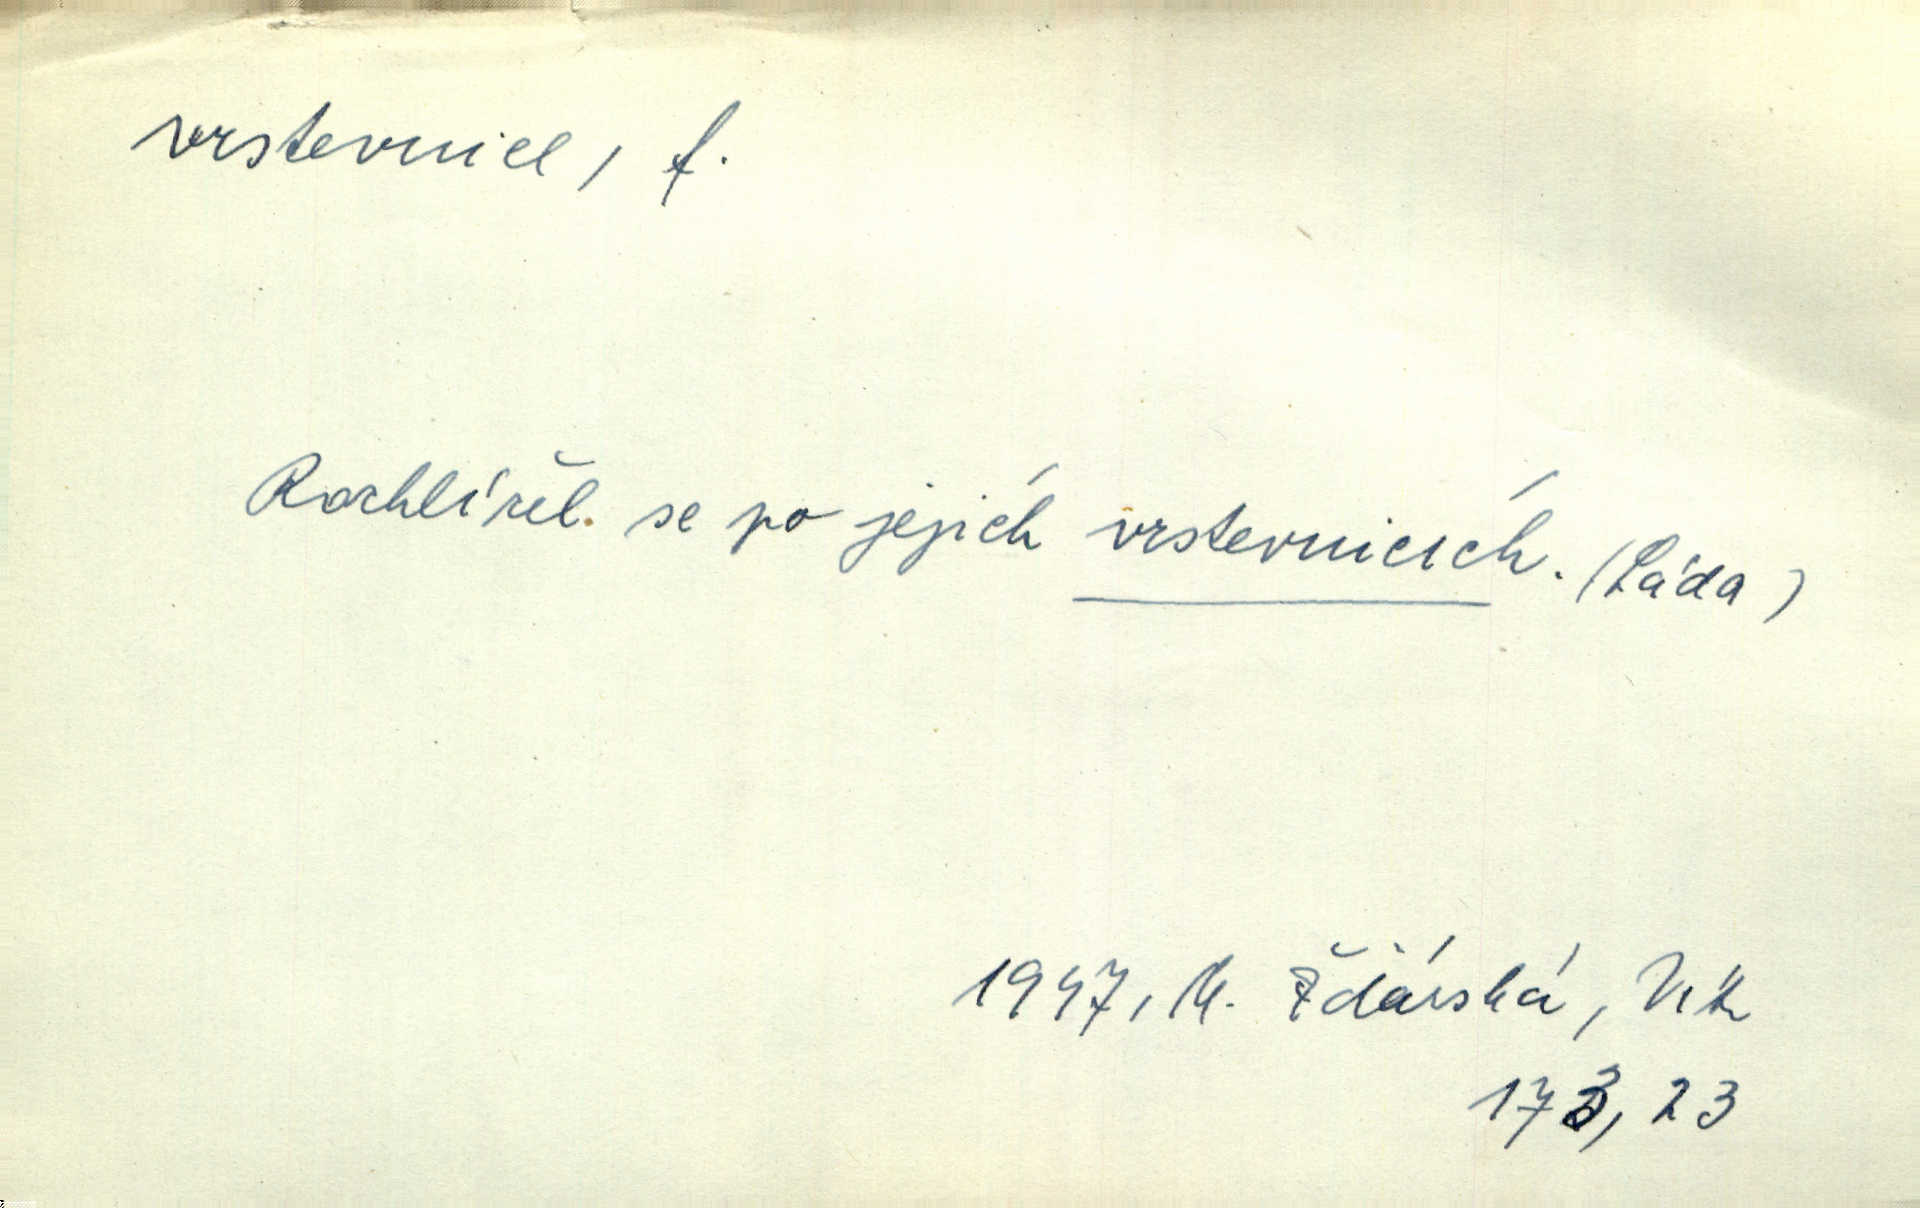 vrstevnice, f.
Rozhlížel se po jejích vrstevnicích. (Láda)
1947, M. Žďárská,
173, 23